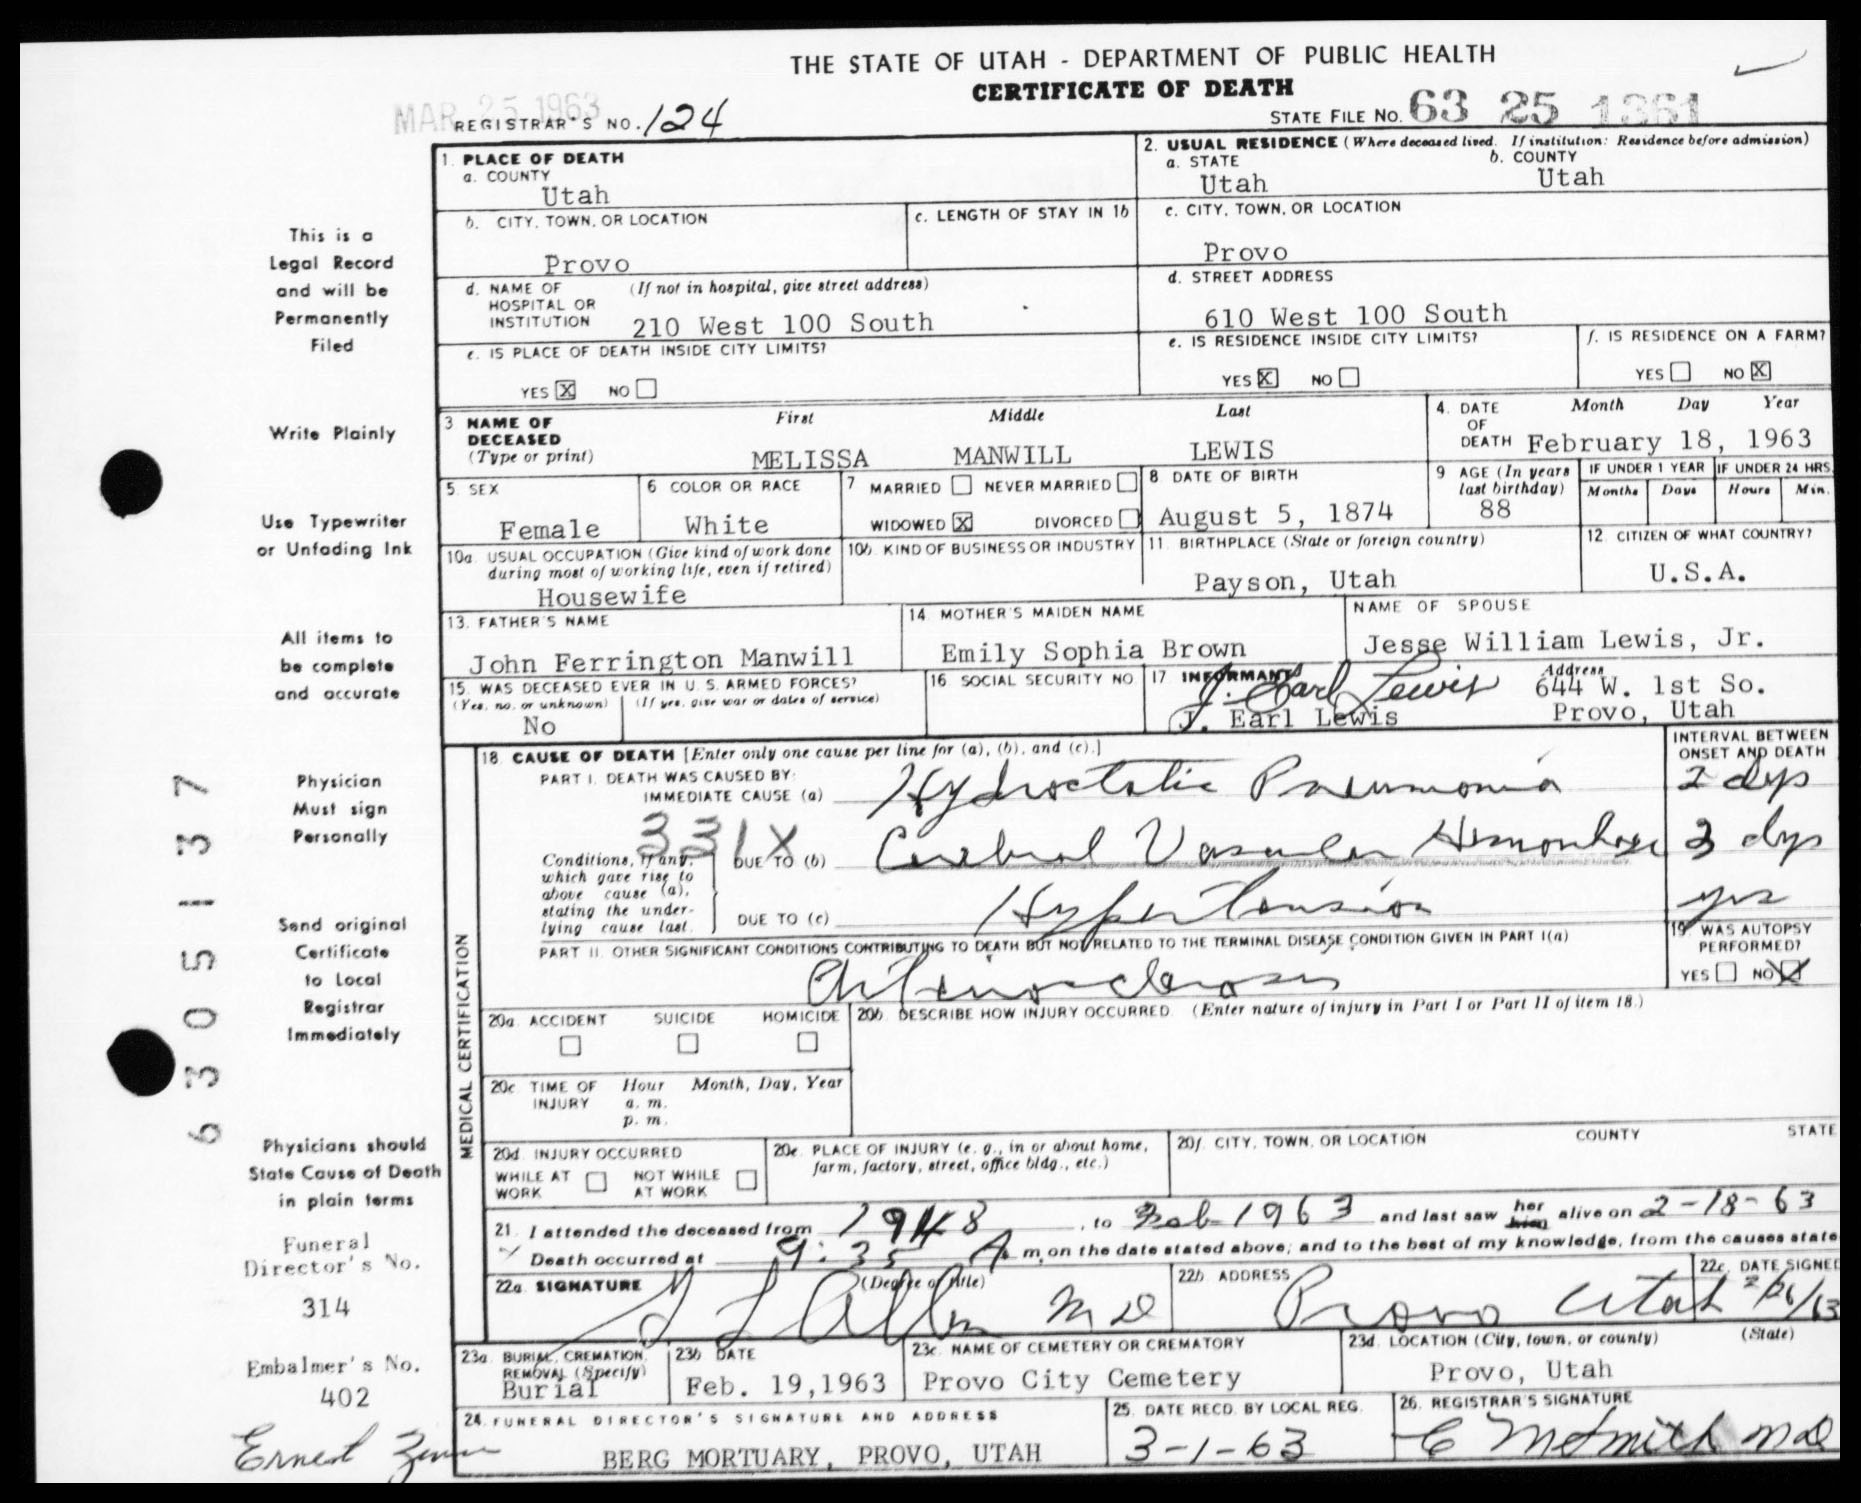 THE STATE OF UTAH - DEPARTMENT OF PUBLIC HEALTH
CERTIFICATE OF DEATH
MAR 25 1963
REGISTRAR'S NO. 124
STATE FILE NO. 63 25 1361
1. PLACE OF DEATH
a. COUNTY
Utah
2. USUAL RESIDENCE (Where deceased lived. If institution: Residence before admission)
a. STATE b. COUNTY
Utah Utah
b. CITY, TOWN, OR LOCATION
Provo
c. LENGTH OF STAY IN 1b
c. CITY, TOWN, OR LOCATION
Provo
d. NAME OF HOSPITAL OR INSTITUTION (If not in hospital, give street address)
210 West 100 South
d. STREET ADDRESS
610 West 100 South
e. IS PLACE OF DEATH INSIDE CITY LIMITS?
YES X NO
e. IS RESIDENCE INSIDE CITY LIMITS?
YES X NO
f. IS RESIDENCE ON A FARM?
YES NO X
3 NAME OF DECEASED (Type or print)
First Middle Last
MELISSA MANWILL LEWIS
4. DATE OF DEATH
Month Day Year
February 18, 1963
5. SEX
Female
6 COLOR OR RACE
White
7 MARRIED NEVER MARRIED
WIDOWED X DIVORCED
8 DATE OF BIRTH
August 5, 1874
9 AGE (In years last birthday)
88
IF UNDER 1 YEAR
Months Days
IF UNDER 24 HRS.
Hours Min.
10a. USUAL OCCUPATION (Give kind of work done during most of working life, even if retired)
Housewife
10b. KIND OF BUSINESS OR INDUSTRY
11. BIRTHPLACE (State or foreign country)
Payson, Utah
12. CITIZEN OF WHAT COUNTRY?
U.S.A.
13. FATHER'S NAME
John Ferrington Manwill
14. MOTHER'S MAIDEN NAME
Emily Sophia Brown
NAME OF SPOUSE
Jesse William Lewis, Jr.
15. WAS DECEASED EVER IN U. S. ARMED FORCES?
(Yes, no, or unknown) (If yes, give war or dates of service)
No
16 SOCIAL SECURITY NO.
17 INFORMANT'S Address
J. Earl Lewis 644 W. 1st So.
J. Earl Lewis Provo, Utah
MEDICAL CERTIFICATION
18. CAUSE OF DEATH [Enter only one cause per line for (a), (b), and (c).]
INTERVAL BETWEEN ONSET AND DEATH
PART I. DEATH WAS CAUSED BY:
IMMEDIATE CAUSE (a) Hydrostatic Pneumonia 2 dys
331X
Conditions, if any, which gave rise to above cause (a), stating the underlying cause last.
DUE TO (b) Cerebral Vascular Hemorrhage 3 dys
DUE TO (c) Hypertension yrs
PART II. OTHER SIGNIFICANT CONDITIONS CONTRIBUTING TO DEATH BUT NOT RELATED TO THE TERMINAL DISEASE CONDITION GIVEN IN PART I(a)
Arteriosclerosis
19. WAS AUTOPSY PERFORMED?
YES NO X
20a. ACCIDENT SUICIDE HOMICIDE
20b. DESCRIBE HOW INJURY OCCURRED. (Enter nature of injury in Part I or Part II of item 18.)
20c. TIME OF INJURY Hour Month, Day, Year
a. m.
p. m.
20d. INJURY OCCURRED
WHILE AT WORK NOT WHILE AT WORK
20e. PLACE OF INJURY (e. g., in or about home, farm, factory, street, office bldg., etc.)
20f. CITY, TOWN, OR LOCATION COUNTY STATE
21. I attended the deceased from 1948, to Feb 1963 and last saw her him alive on 2-18-63
Death occurred at 9:35 A. m, on the date stated above; and to the best of my knowledge, from the causes state
22a. SIGNATURE (Degree or title)
Allen M D
22b. ADDRESS
Provo Utah
22c. DATE SIGNED
2/26/63
23a. BURIAL, CREMATION, REMOVAL (Specify)
Burial
23b. DATE
Feb. 19,1963
23c. NAME OF CEMETERY OR CREMATORY
Provo City Cemetery
23d. LOCATION (City, town, or county) (State)
Provo, Utah
24. FUNERAL DIRECTOR'S SIGNATURE AND ADDRESS
BERG MORTUARY, PROVO, UTAH
25. DATE RECD. BY LOCAL REG.
3-1-63
26. REGISTRAR'S SIGNATURE
This is a
Legal Record
and will be
Permanently
Filed
Write Plainly
Use Typewriter
or Unfading Ink
All items to
be complete
and accurate
Physician
Must sign
Personally
Send original
Certificate
to Local
Registrar
Immediately
Physicians should
State Cause of Death
in plain terms
Funeral
Director's No.
314
Embalmer's No.
402
Ernest
6305137